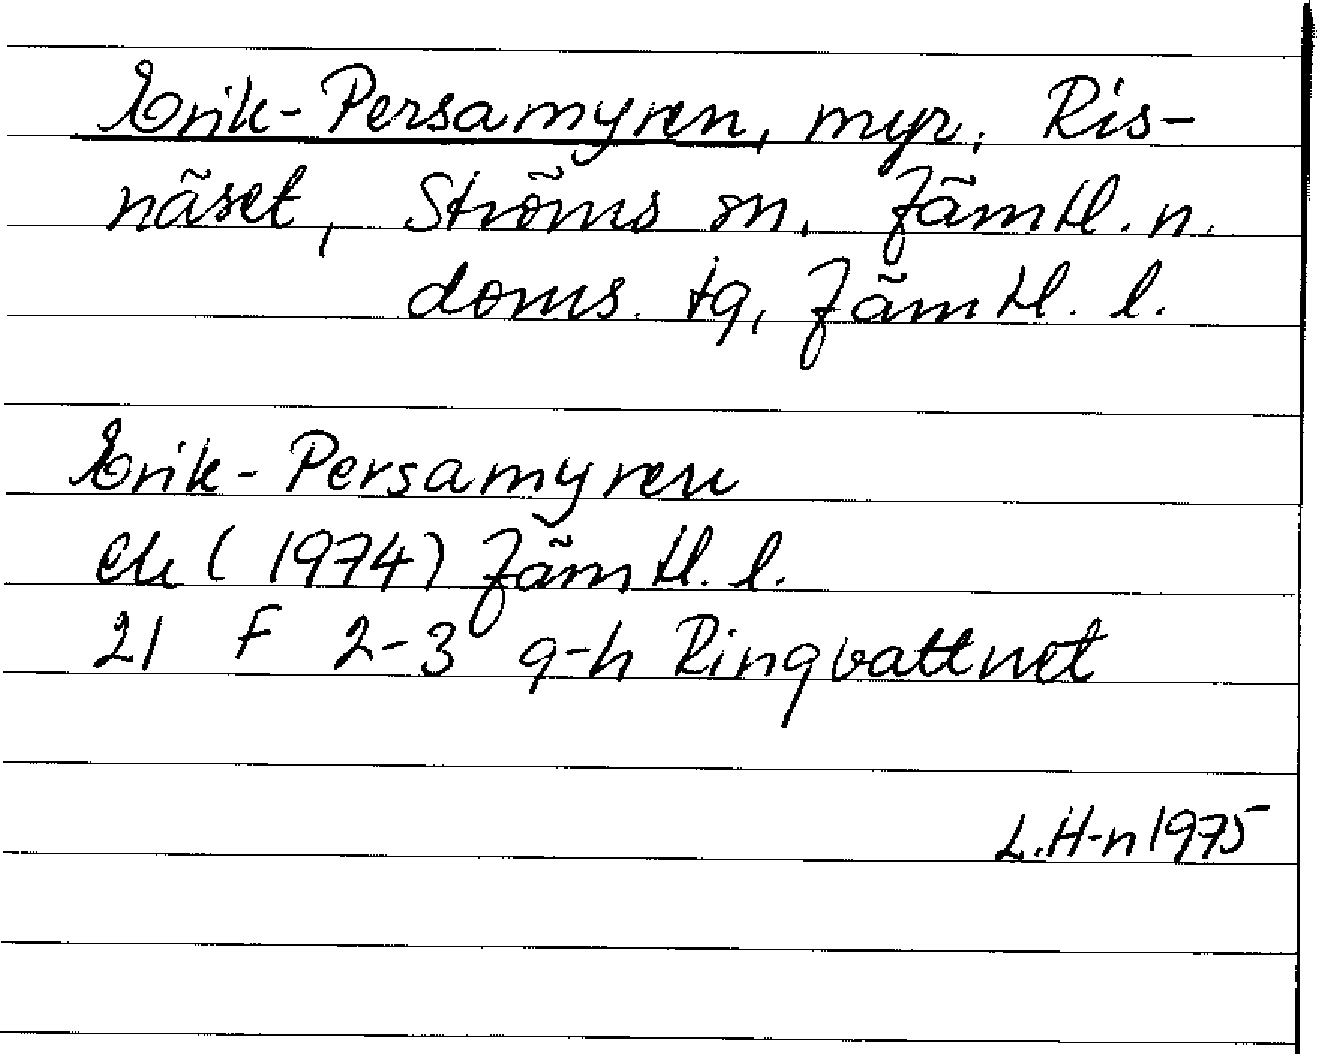 Erik-Persamyren, myr, Ris-
näset, Ströms sn, Jämtl. n.
doms. tg, Jämtl. l.
Erik-Persamyren
Ek (1974) Jämtl. l.
21 F 2-3 g-h Ringvattnet
L.H-n 1975